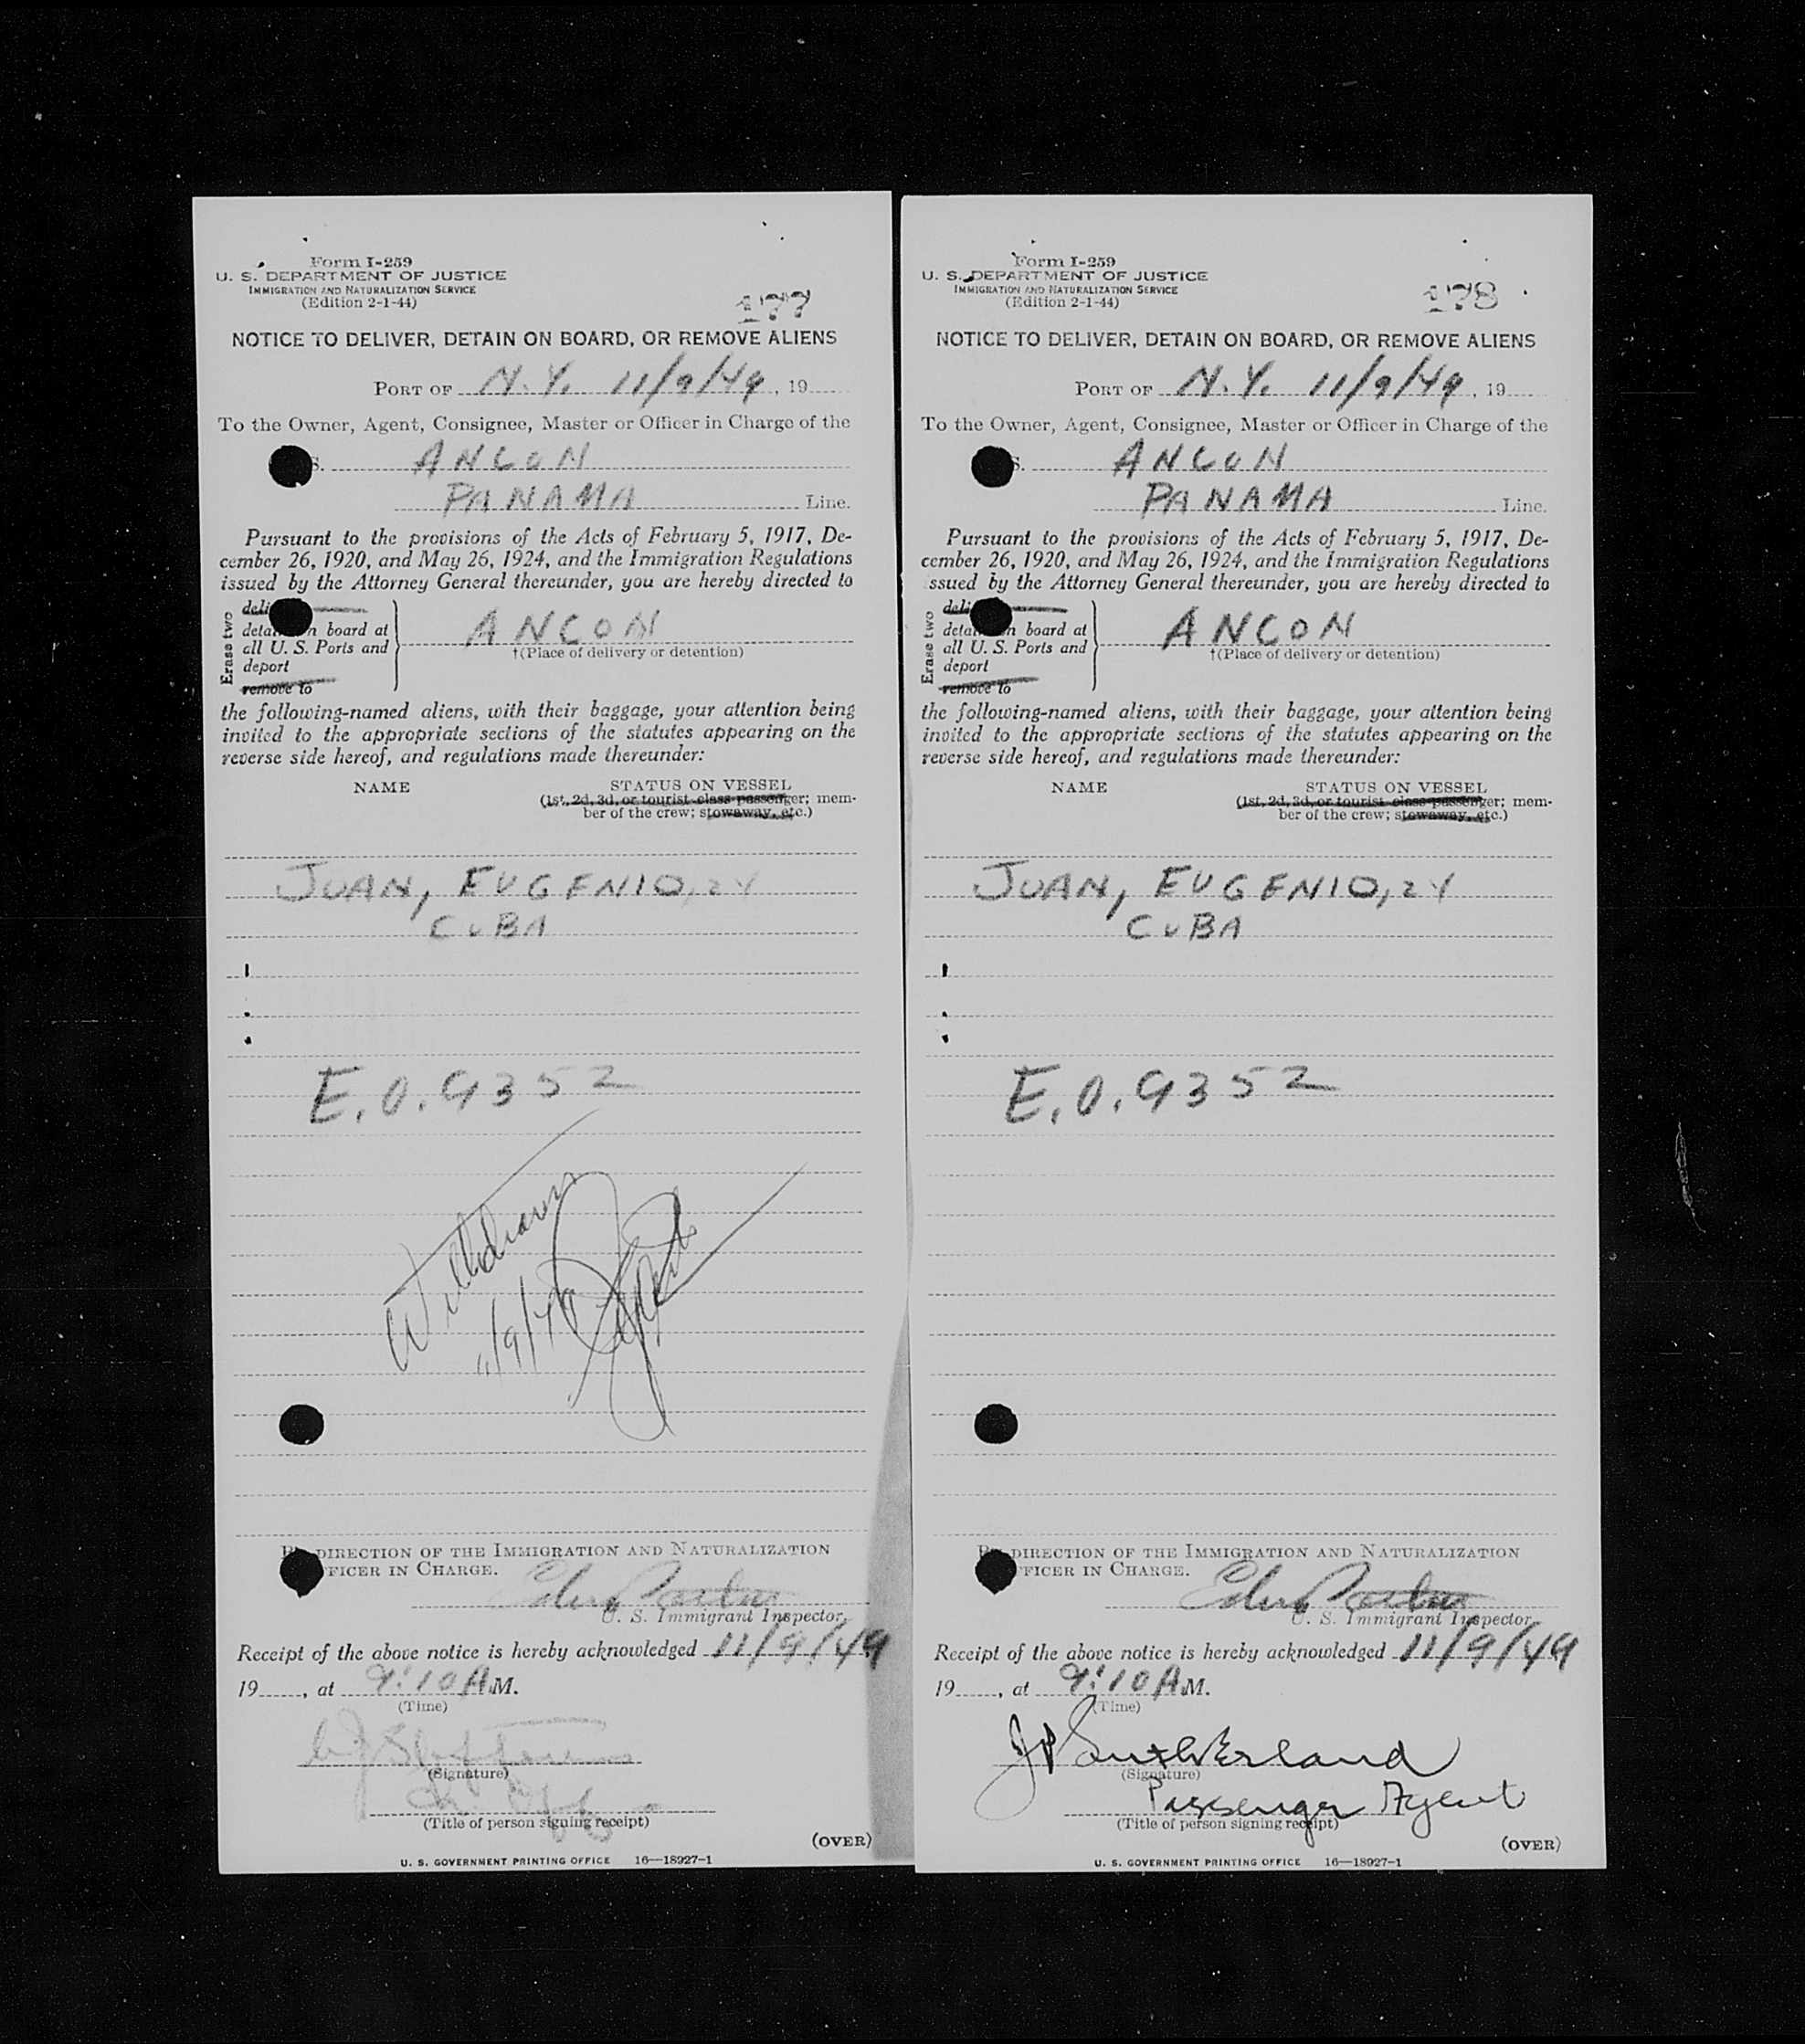 Form I-259
U. S. DEPARTMENT OF JUSTICE
IMMIGRATION AND NATURALIZATION SERVICE
(Edition 2-1-44)
177
NOTICE TO DELIVER, DETAIN ON BOARD, OR REMOVE ALIENS
PORT OF N.Y. 11/9/49, 19
To the Owner, Agent, Consignee, Master or Officer in Charge of the
S. ANCON
PANAMA Line.
Pursuant to the provisions of the Acts of February 5, 1917, De-
cember 26, 1920, and May 26, 1924, and the Immigration Regulations
issued by the Attorney General thereunder, you are hereby directed to
Erase two
deli
detain on board at
all U. S. Ports and
deport
remove to
ANCON
†(Place of delivery or detention)
the following-named aliens, with their baggage, your attention being
invited to the appropriate sections of the statutes appearing on the
reverse side hereof, and regulations made thereunder:
NAME STATUS ON VESSEL
(1st, 2d, 3d, or tourist class passenger; mem-
ber of the crew; stowaway, etc.)
JUAN, EUGENIO, 24
CUBA
E.O. 9352
Withdrawn
11/9/49
BY DIRECTION OF THE IMMIGRATION AND NATURALIZATION
FICER IN CHARGE.
U. S. Immigrant Inspector.
Receipt of the above notice is hereby acknowledged 11/9/49
19, at 9:10 A.M.
(Time)
(Signature)
(Title of person signing receipt)
(OVER)
U. S. GOVERNMENT PRINTING OFFICE 16—18927-1
Form I-259
U. S. DEPARTMENT OF JUSTICE
IMMIGRATION AND NATURALIZATION SERVICE
(Edition 2-1-44)
178
NOTICE TO DELIVER, DETAIN ON BOARD, OR REMOVE ALIENS
PORT OF N.Y. 11/9/49, 19
To the Owner, Agent, Consignee, Master or Officer in Charge of the
S. ANCON
PANAMA Line.
Pursuant to the provisions of the Acts of February 5, 1917, De-
cember 26, 1920, and May 26, 1924, and the Immigration Regulations
ssued by the Attorney General thereunder, you are hereby directed to
Erase two
deli
detain on board at
all U. S. Ports and
deport
remove to
ANCON
†(Place of delivery or detention)
the following-named aliens, with their baggage, your attention being
invited to the appropriate sections of the statutes appearing on the
reverse side hereof, and regulations made thereunder:
NAME STATUS ON VESSEL
(1st, 2d, 3d, or tourist class passenger; mem-
ber of the crew; stowaway, etc.)
JUAN, EUGENIO, 24
CUBA
E.O. 9352
BY DIRECTION OF THE IMMIGRATION AND NATURALIZATION
FICER IN CHARGE.
U. S. Immigrant Inspector.
Receipt of the above notice is hereby acknowledged 11/9/49
19, at 9:10 A.M.
(Time)
JP Sutherland
(Signature)
Passenger Agent
(Title of person signing receipt)
(OVER)
U. S. GOVERNMENT PRINTING OFFICE 16—18927-1